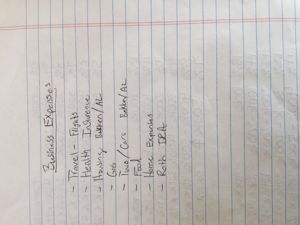 Business Expenses
- Travel - Flights
- Health Insurance
- Housing /AZ
- Gas
- /Cars /AZ
- Food
- Home Expenses
- Roth IRA